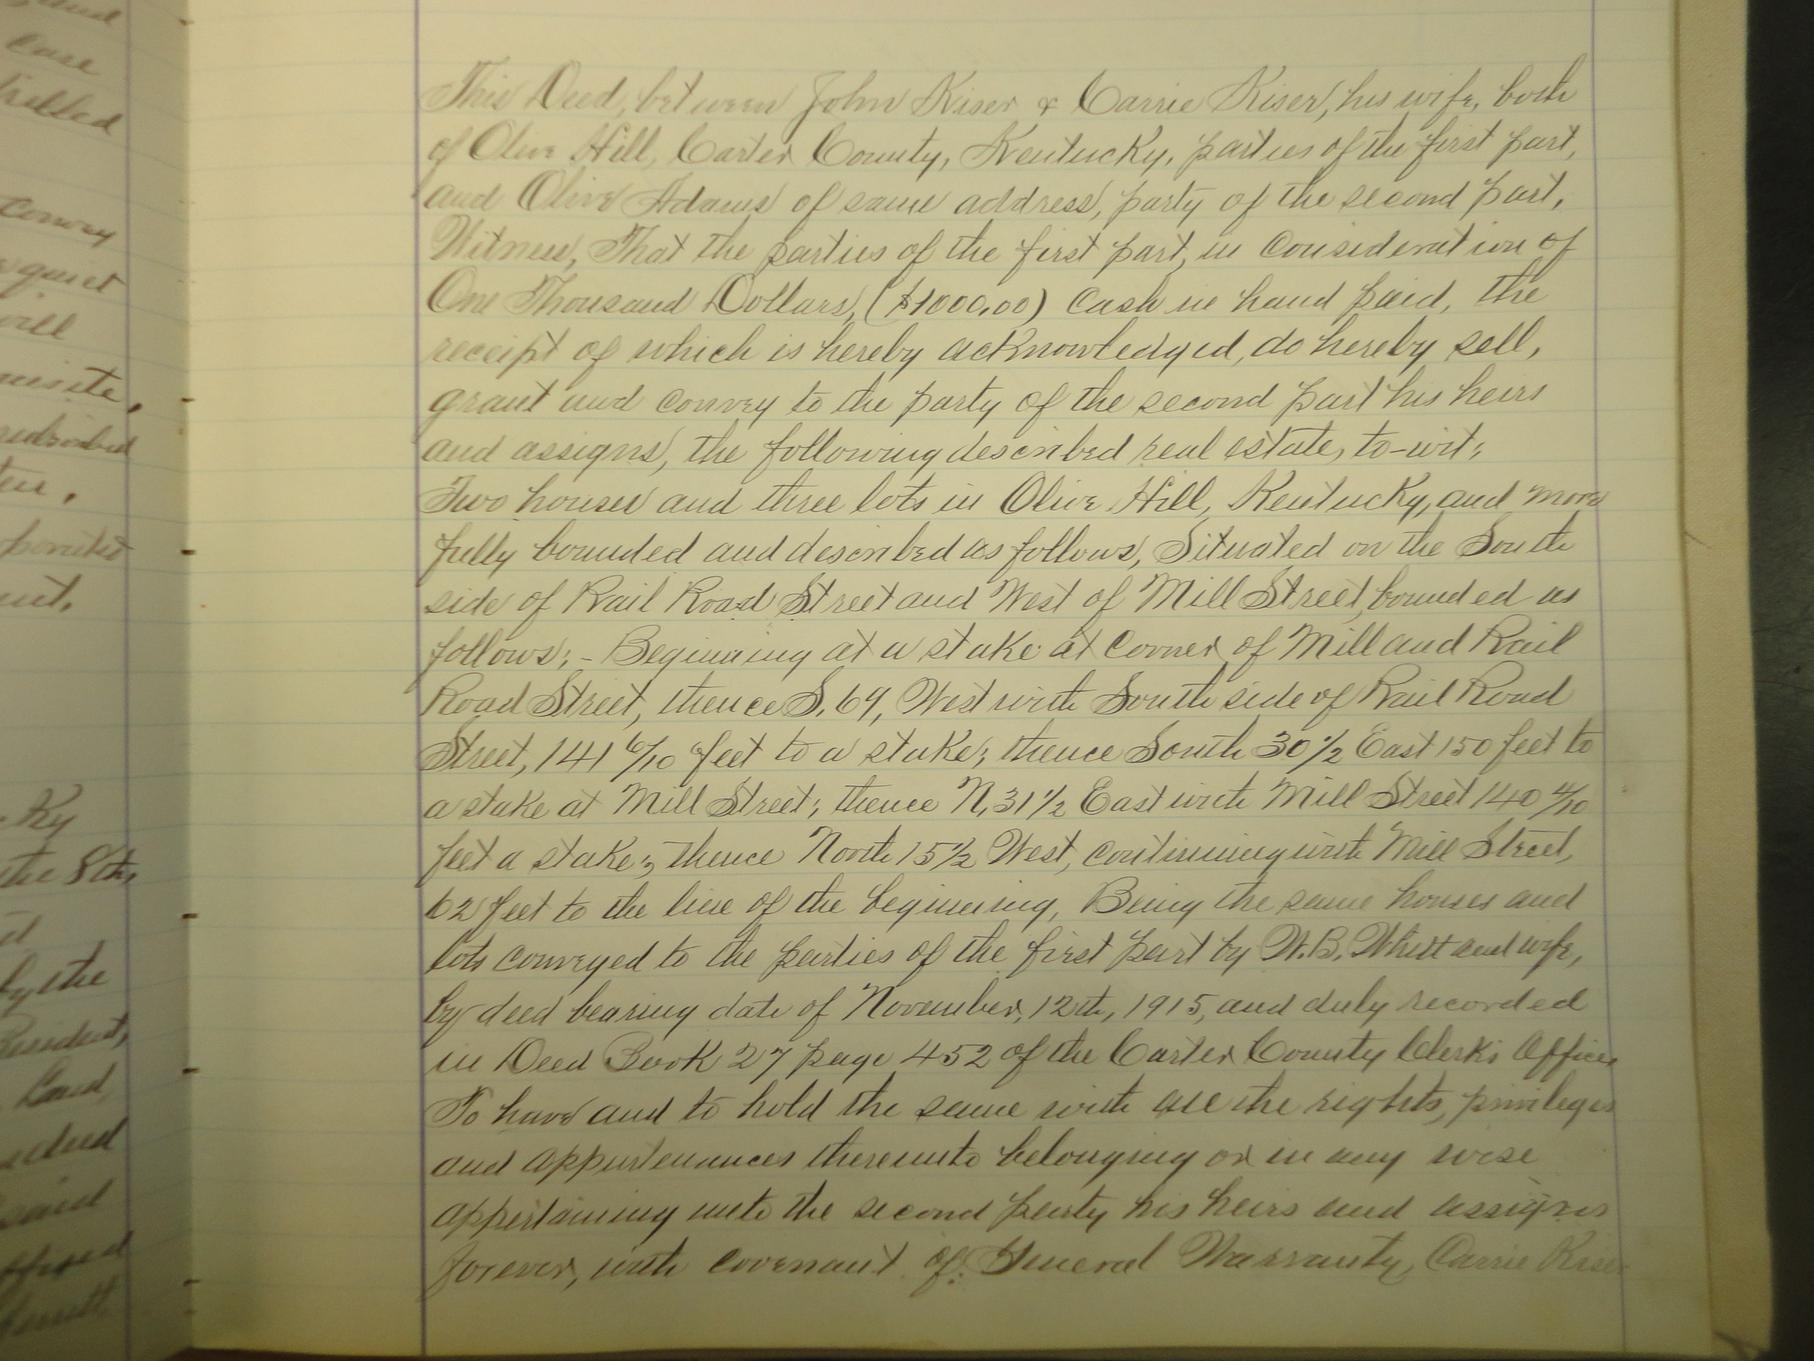 and
Case
nisite,
ten,
the 8th,
by the
Resident,
Land
said
This Deed, between John Kiser & Carrie Kiser, his wife, both
of Olive Hill, Carter County, Kentucky, parties of the first part,
and Olive Adams of same address, party of the second part,
Witness, That the parties of the first part, in consideration of
One Thousand Dollars, ($1000.00) Cash in hand paid, the
receipt of which is hereby acknowledged, do hereby sell,
grant and convey to the party of the second part his heirs
and assigns, the following described real estate, to-wit:
Two houses and three lots in Olive Hill, Kentucky, and more
fully bounded and described as follows, Situated on the South
side of Rail Road Street and West of Mill Street, bounded as
follows; - Beginning at a stake at corner of Mill and Rail
Road Street, thence S. 69, West with South side of Rail Road
Street, 141 6/10 feet to a stake; thence South 30 1/2 East 150 feet to
a stake at Mill Street; thence N, 31 1/2 East with Mill Street 140 4/10
feet a stake; thence North 15 1/2 West, continuing with Mill Street,
62 feet to the line of the beginning, Being the same houses and
lots conveyed to the parties of the first part by W.B. Whitt and wife,
by deed bearing date of November, 12th, 1915, and duly recorded
in Deed Book 27 page 452 of the Carter County Clerk's Office
To have and to hold the same with all the rights, privileges
and appurtenances thereunto belonging or in any wise
appertaining unto the second party his heirs and assigns
forever, with covenant of General Warranty, Carrie Kiser